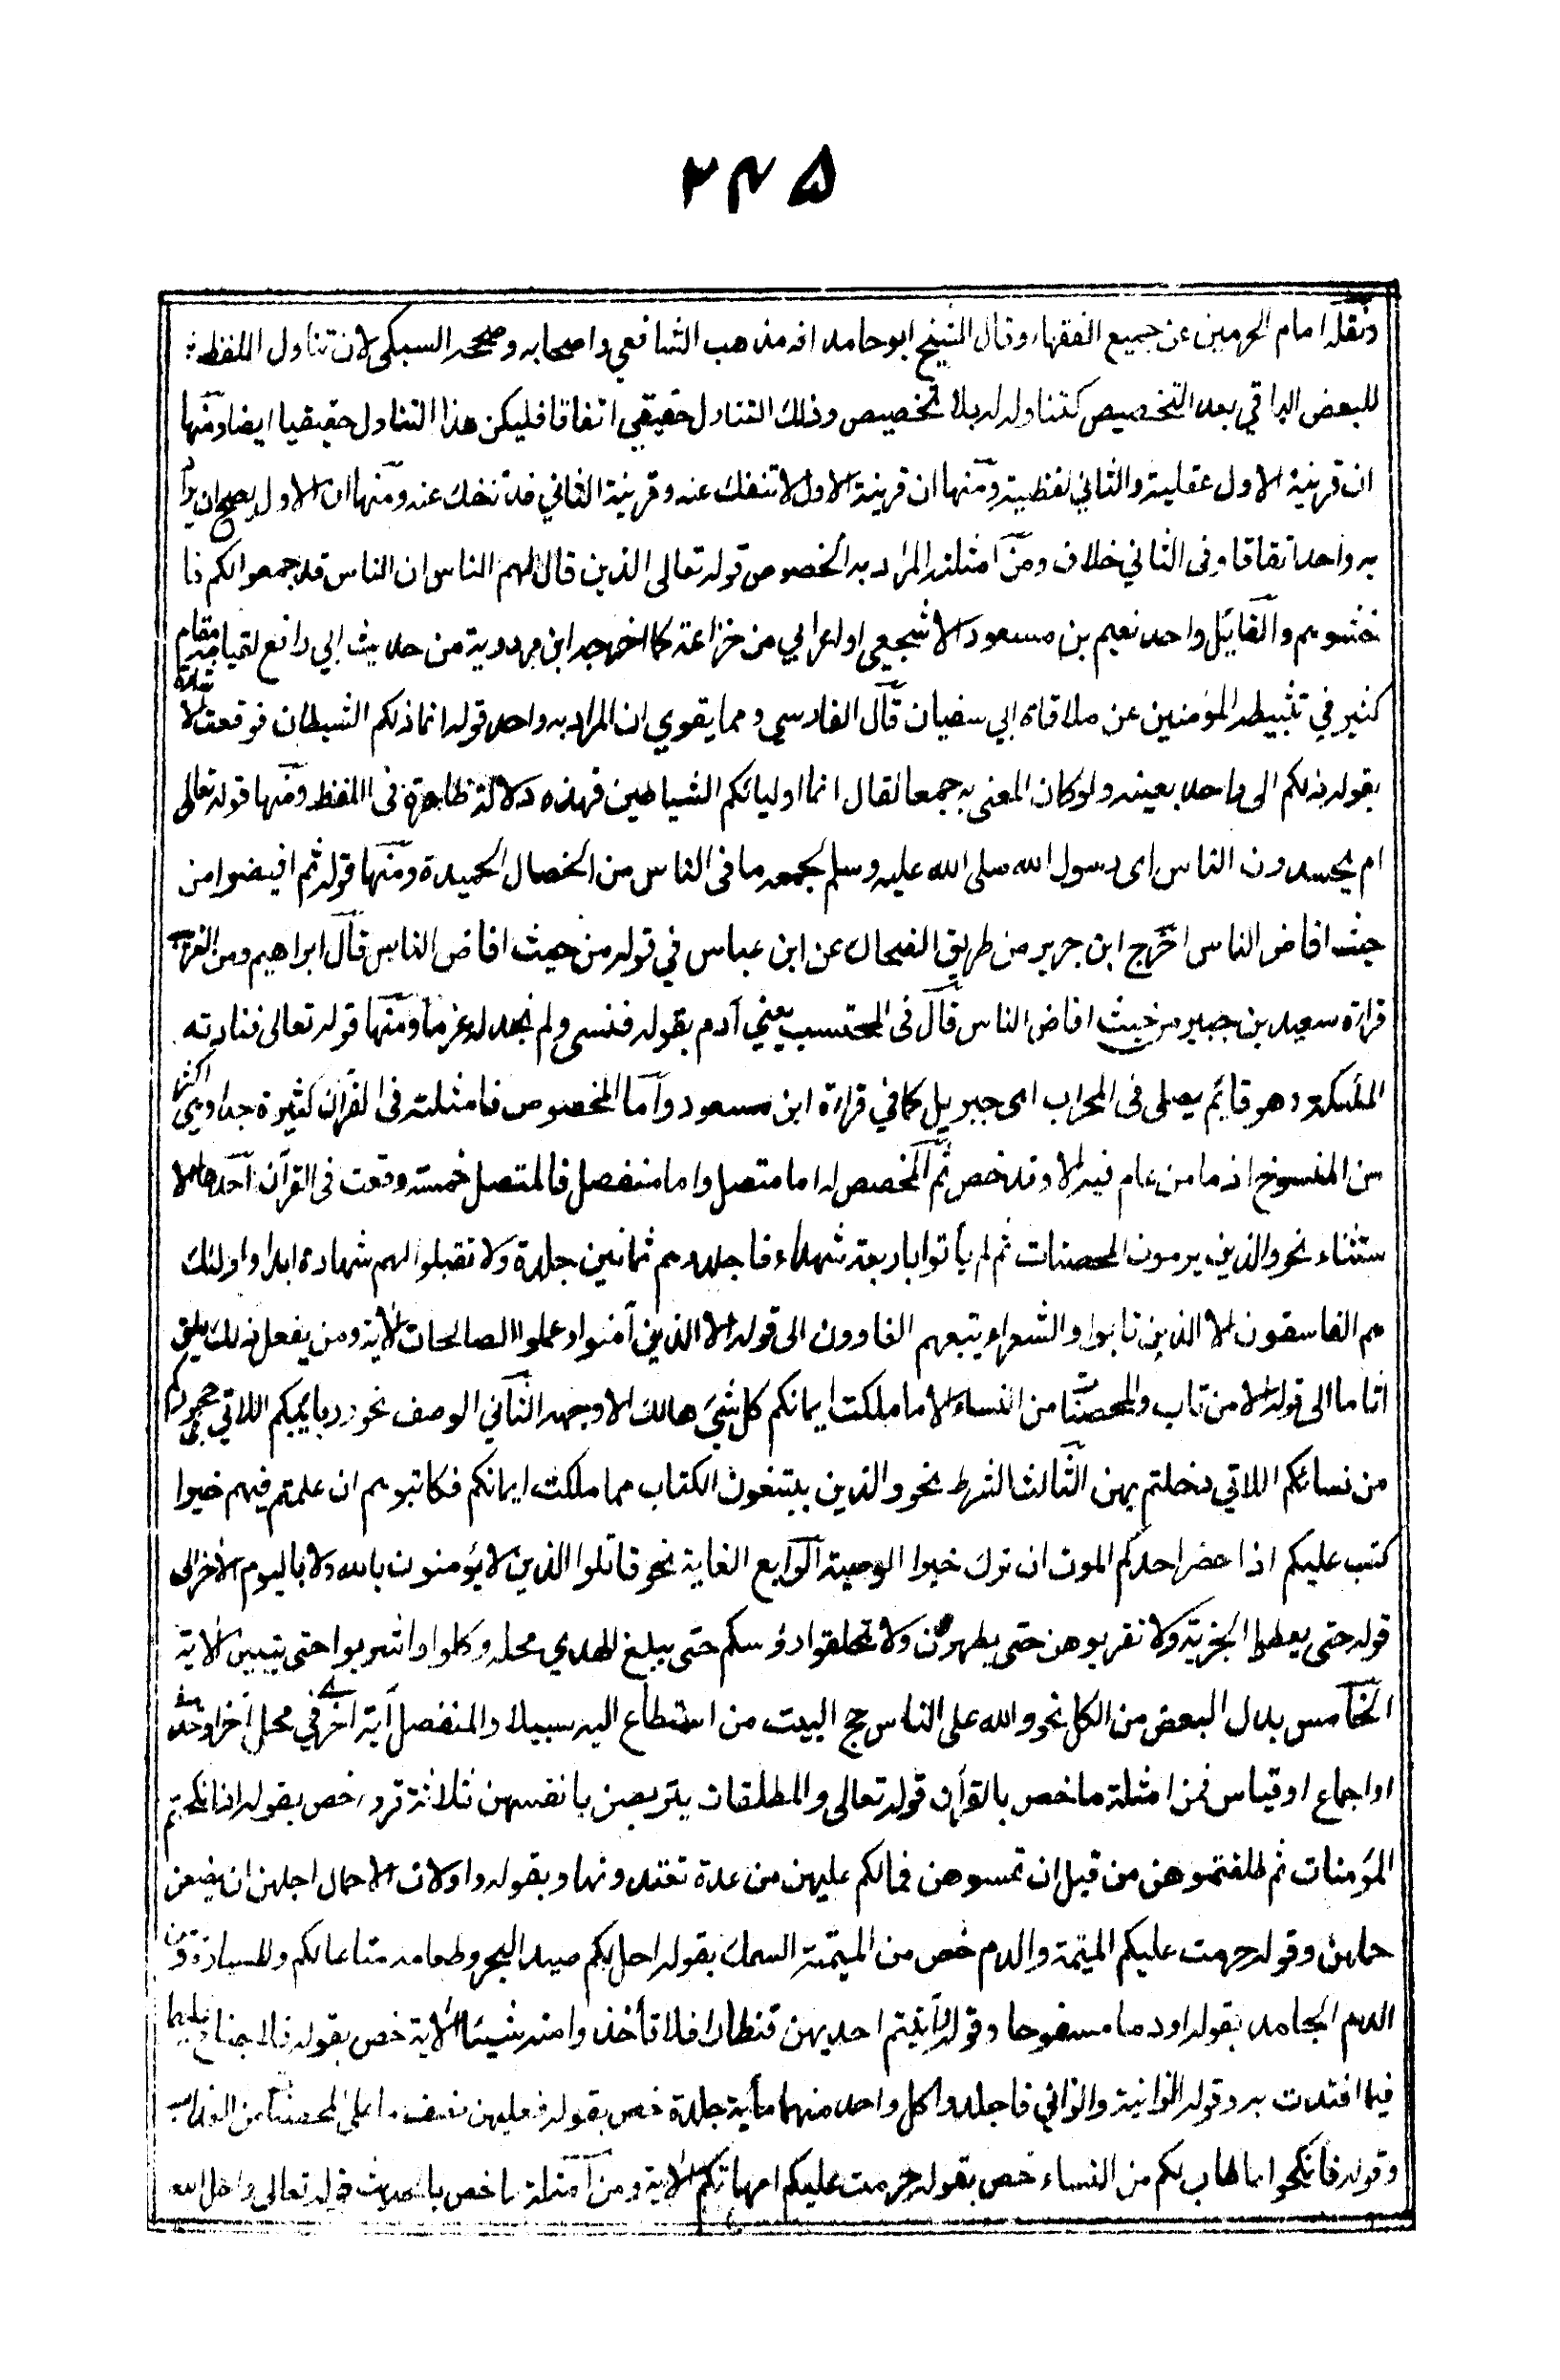 ۲۴۵
ونقله امام الحرمين عن جميع الفقهاء وقال الشيخ ابو حامد انه مذهب الشافعي واصحابه وصححه السبكى لان تناول اللفظ
للبعض الباقي بعد التخصيص كتناوله له بلا تخصيص وذلك التناول حقيقي اتفاقا فليكن هذا التناول حقيقيا ايضا ومنها
ان قرينة الاول عقلية والثاني لفظية ومنها ان قرينة الاول لا تنفك عنه وقرينة الثاني قد تنفك عنه ومنها ان الاول يصح ان يراد
به واحد اتفاقا وفى الثاني خلاف ومن امثلة المراد به الخصوص قوله تعالى الذين قال لهم الناس ان الناس قد جمعوا لكم فا
خشوهم والقائل واحد نعيم بن مسعود الاشجعي او اعرابي من خزاعة كما اخرجه ابن مردوية من حديث ابي رافع لقيامه مقام
كثير في تثبيطه المؤمنين عن ملاقاة ابي سفيان قال الفارسي ومما يقوي ان المراد به واحد قوله انما ذلكم الشيطان فوقعت الاشارة
بقوله ذلكم الى واحد بعينه ولو كان المعنى به جمعا لقال انما اوليائكم الشياطين فهذه دلالة ظاهرة فى اللفظ ومنها قوله تعالى
ام يحسدون الناس اى رسول الله صلى الله عليه وسلم لجمعه ما فى الناس من الخصال الحميدة ومنها قوله ثم افيضوا من
حيث افاض الناس اخرج ابن جرير من طريق الضحاك عن ابن عباس في قوله من حيث افاض الناس قال ابراهيم ومن الغريب
قراءة سعيد بن جبير من حيث افاض الناس قال فى المحتسب يعني آدم بقوله فنسى ولم نجد له عزما ومنها قوله تعالى فنادته
الملئكة وهو قائم يصلى فى المحراب اى جبريل كما في قراءة ابن مسعود واما المخصوص فامثلته فى القرآن كثيرة جدا وهى اكثر
من المنسوخ اذ ما من عام فيه الا وقد خص ثم المخصص له اما متصل واما منفصل فالمتصل خمسة وقعت فى القرآن احدها الا
ستثناء نحو والذين يرمون المحصنات ثم لم يأتوا باربعة شهداء فاجلدوهم ثمانين جلدة ولا تقبلوا لهم شهادة ابدا واولئك
هم الفاسقون الا الذين تابوا والشعراء يتبعهم الغاوون الى قوله الا الذين آمنوا وعملوا الصالحات الآية ومن يفعل ذلك يلق
اثاما الى قوله الا من تاب والمحصنات من النساء الا ما ملكت ايمانكم كل شئ هالك الا وجهه الثاني الوصف نحو وربائبكم اللاتي فى حجوركم
من نسائكم اللاتي دخلتم بهن الثالث الشرط نحو والذين يبتغون الكتاب مما ملكت ايمانكم فكاتبوهم ان علمتم فيهم خيرا
كتب عليكم اذا حضر احدكم الموت ان ترك خيرا الوصية الرابع الغاية نحو قاتلوا الذين لا يؤمنون بالله ولا باليوم الآخر الى
قوله حتى يعطوا الجزية ولا تقربوهن حتى يطهرن ولا تحلقوا رؤسكم حتى يبلغ الهدي محله وكلوا واشربوا حتى يتبين الآية
الخامس بدل البعض من الكل نحو ولله على الناس حج البيت من استطاع اليه سبيلا والمنفصل آية اخرى في محل آخر او حديث
او اجماع او قياس فمن امثلة ما خص بالقرآن قوله تعالى والمطلقات يتربصن بانفسهن ثلاثة قروء خص بقوله اذا نكحتم
المؤمنات ثم طلقتموهن من قبل ان تمسوهن فمالكم عليهن من عدة تعتدونها وبقوله واولات الاحمال اجلهن ان يضعن
حملهن وقوله حرمت عليكم الميتة والدم خص من الميتة السمك بقوله احل لكم صيد البحر وطعامه متاعا لكم وللسيارة ومن
الدم الجامد بقوله او دما مسفوحا وقوله وآتيتم احديهن قنطارا فلا تأخذوا منه شيئا الآية خص بقوله فلا جناح عليهما
فيما افتدت به وقوله الزانية والزاني فاجلدوا كل واحد منهما مأية جلدة خص بقوله فعليهن نصف ما على المحصنات من العذاب
وقوله فانكحوا ما طاب لكم من النساء خص بقوله حرمت عليكم امهاتكم الآية ومن امثلة ما خص بالحديث قوله تعالى واحل الله